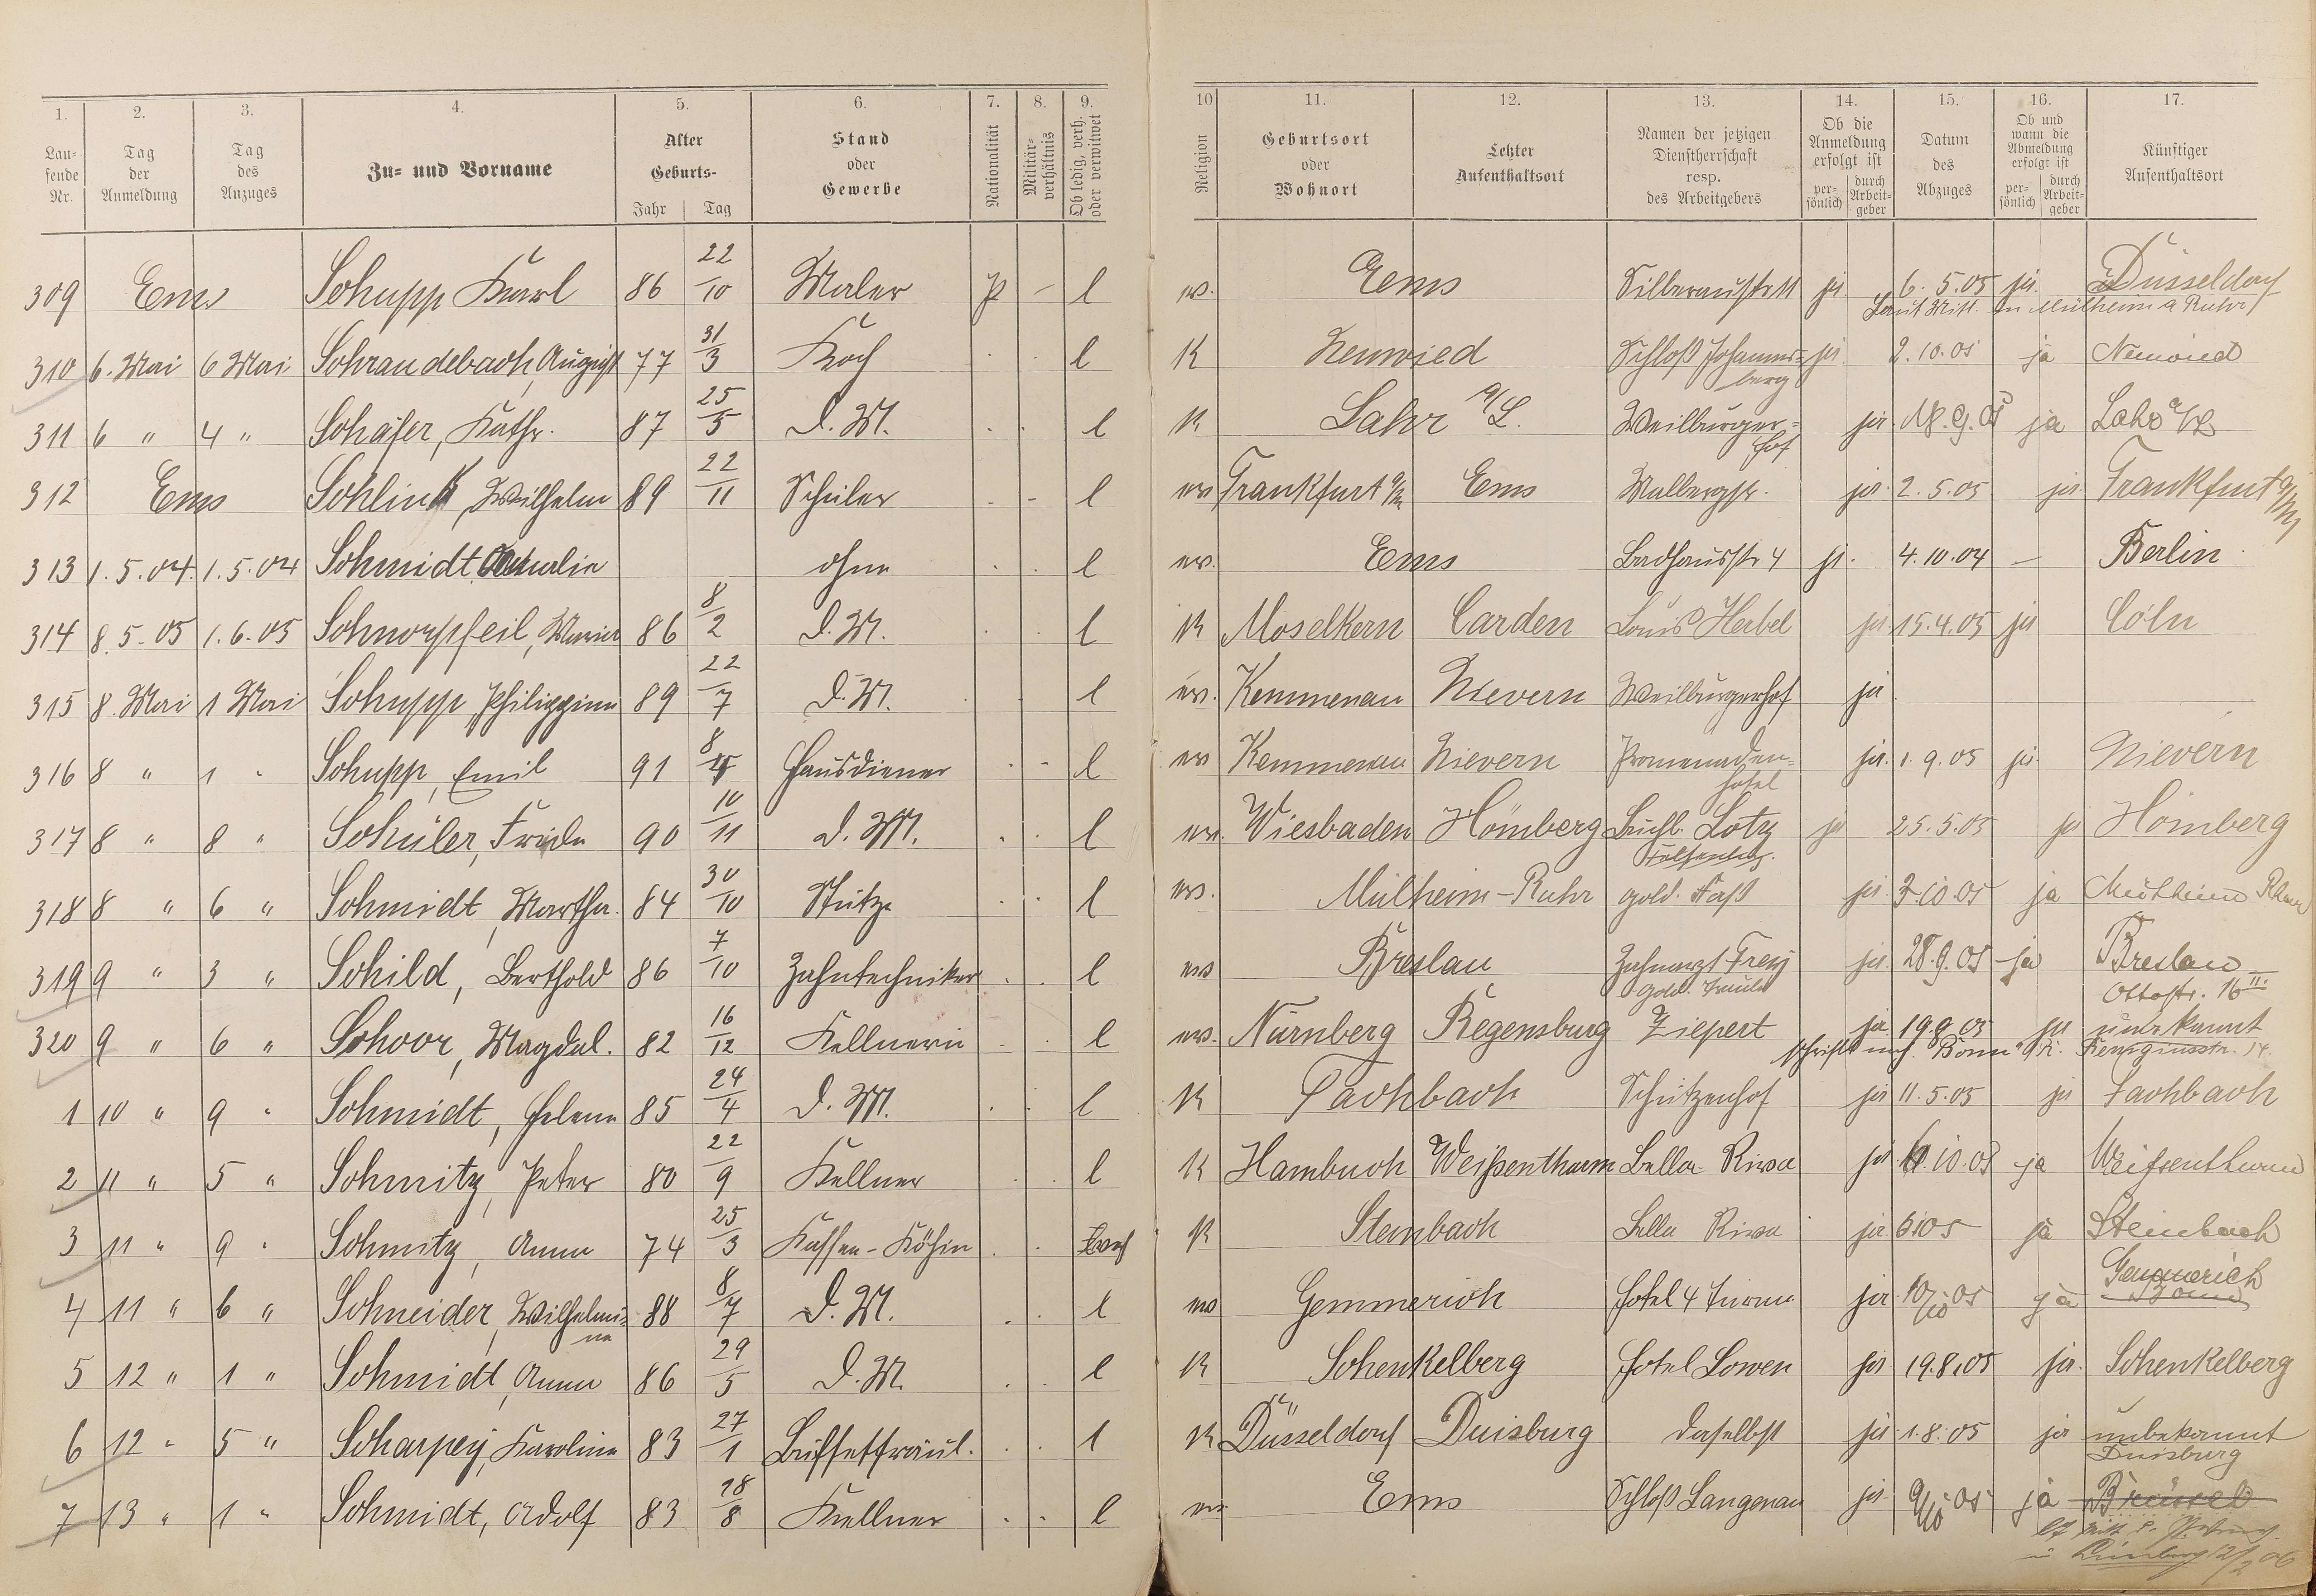 1. 2. 3. 4. 5. 6. 7. 8. 9. 10 11. 12. 13. 14. 15. 16. 17.
Lau-
fende
Nr.
Tag
der
Anmeldung
Tag
des
Anzuges
Zu- und Vorname
Alter
Geburts-
Jahr Tag
Stand
oder
Gewerbe
Nationalität
Militär-
verhältnis
Ob ledig, verh.
oder verwitwet
Religion
Geburtsort
oder
Wohnort
Letzter
Aufenthaltsort
Namen der jetzigen
Dienstherrschaft
resp.
des Arbeitgebers
Ob die
Anmeldung
erfolgt ist
per-
sönlich
durch
Arbeit-
geber
Datum
des
Abzuges
Ob und
wann die
Abmeldung
erfolgt ist
per-
sönlich
durch
Arbeit-
geber
Künftiger
Aufenthaltsort
309 Ems Schupp Karl 86 22/10 Maler p - l ev. Ems Silberaustr 11 ja 6.5.05 ja Düsseldorf
Laut Mitt. in Mülheim a Ruhr
310 6. Mai 6 Mai Schraudebach, August 77 31/3 Koch l K Neuwied Schloß Johannis= ja 2.10.05 ja Neuwied
berg
311 6 " 4 " Schäfer, Kathr. 87 25/5 D. M. l K Lahr a/L. Weilburger= ja 18.9.05 ja Lahr a/L
hof
312 Ems Schlink, Wilhelm 89 22/11 Schüler - l ev Frankfurt a/M Ems Malbergstr. ja 2.5.05 ja Frankfurt a/M
313 1.5.04. 1.5.04 Schmidt Amalie ohne l ev. Ems Badhausstr 4 ja. 4.10.04 — Berlin
314 8.5.05 1.6.05 Schnorpfeil, Maria 86 8/2 D. M. l K Moselkern Carden Louis Herbel ja 15.4.05 ja Cöln
315 8. Mai 1 Mai Schupp Philippine 89 22/7 D. M. l ev. Kemmenau Nievern Weilburgerhof ja
316 8 " 1 " Schupp, Emil 91 8/4 Hausdiener l ev Kemmenau Nievern Promenaden= ja. 1.9.05 ja Nievern
hotel
317 8 " 8 " Schüler, Frieda 90 10/11 D. M. l ev. Wiesbaden Hömberg Buchh. Lotz ja 25.5.05 ja Hömberg
318 8 " 6 " Schmidt, Martha. 84 30/10 Stütze l ev. Mülheim-Ruhr gold. Faß ja 3.10.05 ja Mülheim Ruhr
319 9 " 3 " Schild, Berthold 86 7/10 Zahntechniker l ev Breslau Zahnarzt Frey ja 28.9.05 ja Breslau
Ottostr. 16 II.
320 9 " 6 " Schoor, Magdal. 82 16/12 Kellnerin l ev. Nürnberg Regensburg Ziepert ja 19.9.05 ja unbekannt
schriftl nach Bonn a/R. Remigiusstr. 14.
1 10 " 9 " Schmidt, Helene 85 24/4 D. M. l K Fachbach Schützenhof ja 11.5.05 ja Fachbach
2 11 " 5 " Schmitz, Peter 80 22/9 Kellner l K Hambuch Weißenthurm Bella Riva ja 6.10.05 ja Weißenthurm
3 11 " 9 " Schmitz, Anna 74 25/3 Kaffee-Köchin K Steinbach Bella Riva ja ja Steinbach
4 11 " 6 " Schneider, Wilhelmi= 88 8/7 D. M. l ev Gemmerich Hotel 4 Türme ja 10/10 05 ja Gemmerich
ne
5 12 " 1 " Schmidt, Anna 86 29/5 D. M. l K Schenkelberg Hotel Löwen ja 19.8.05 ja. Schenkelberg
6 12 " 5 " Scharpey, Karoline 83 27/1 Buffetfräul. l K Düsseldorf Duisburg daselbst ja 1.8.05 ja unbekannt
Duisburg
7 13 " 1 " Schmidt, Adolf 83 28/8 Kellner l ev Ems Schloß Langenau ja 9/10 05 ja Brüssel